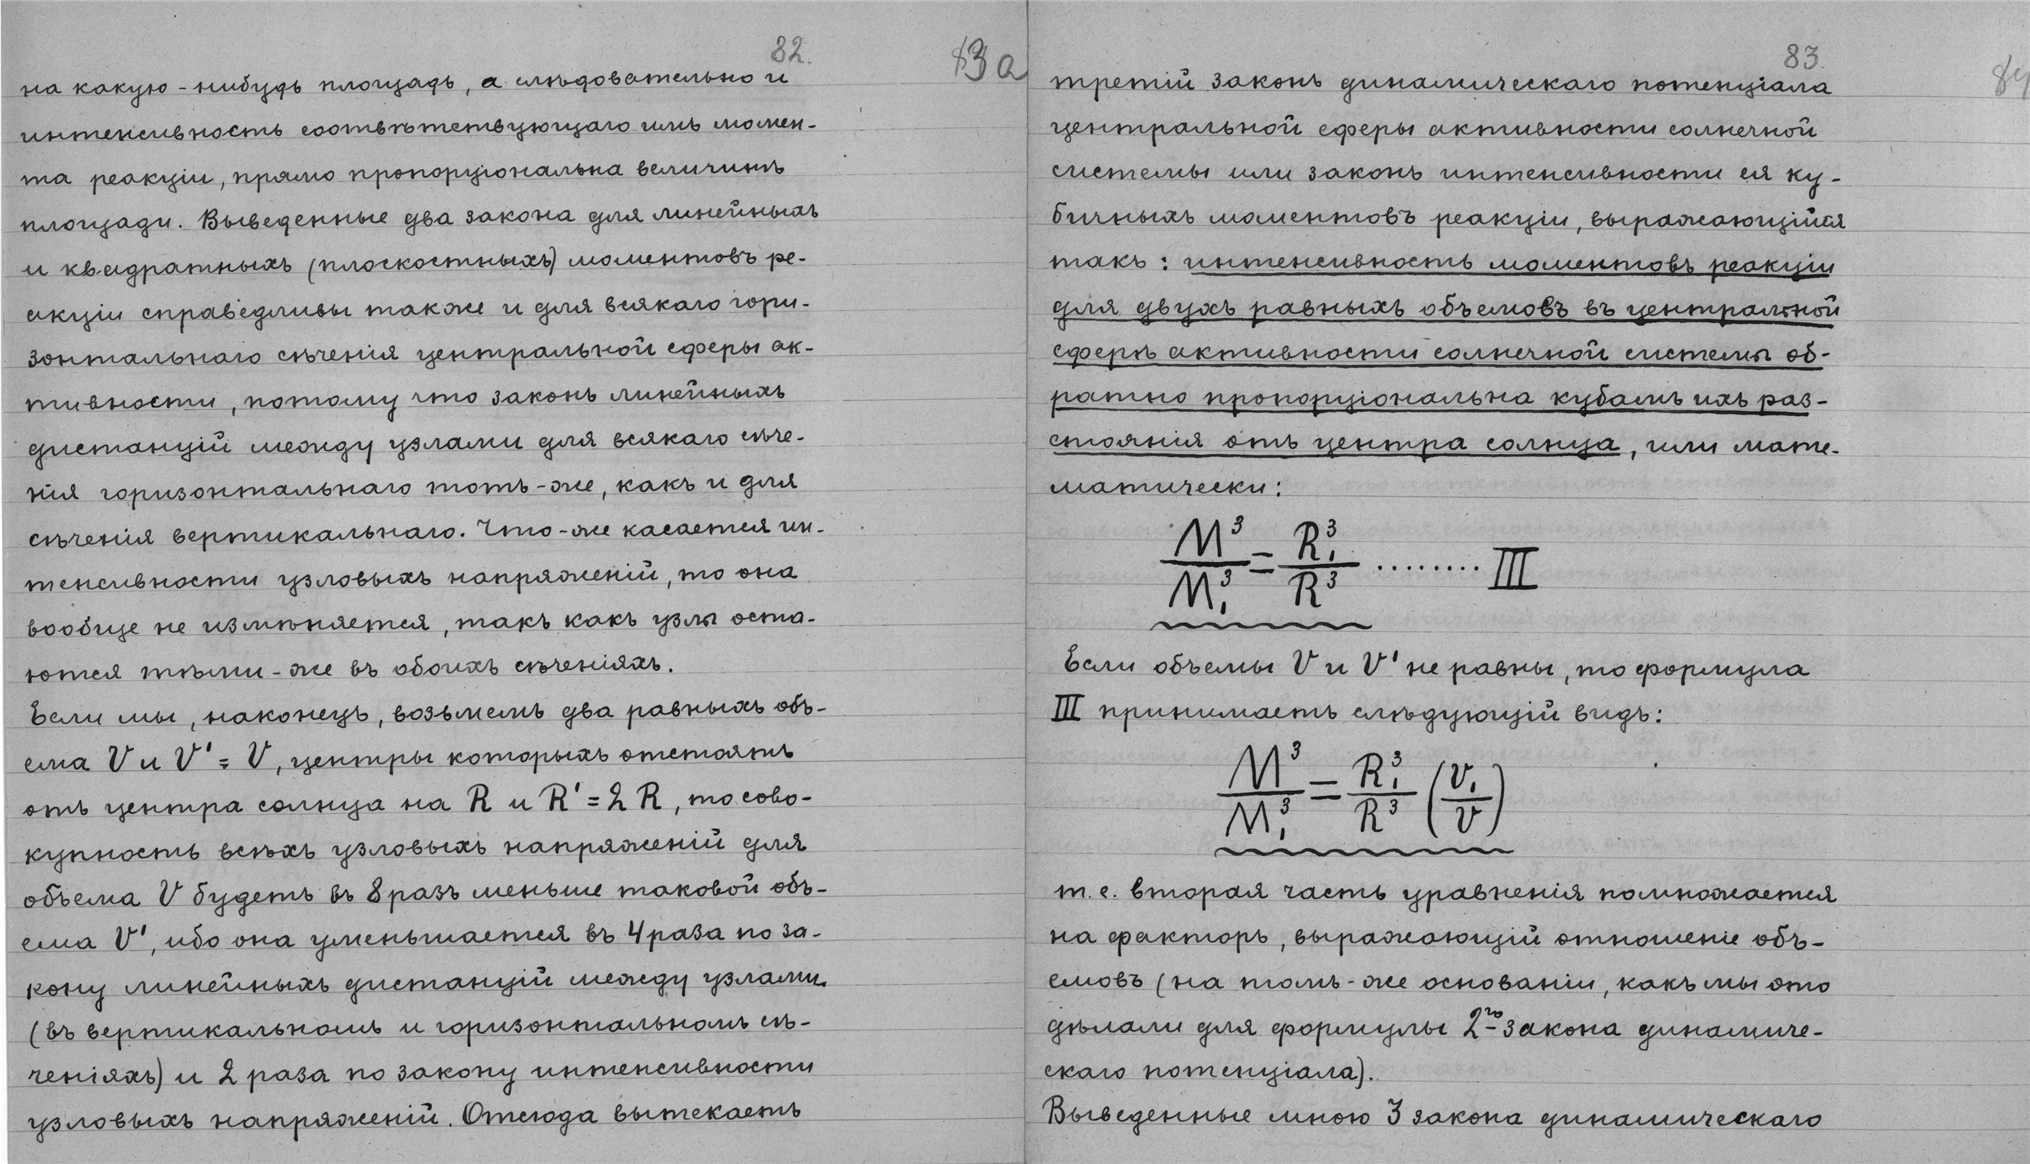 82.
на какую-нибудь площадь, а слѣдовательно и
интенсивность соотвѣтствующаго имъ момен-
та реакціи, прямо пропорціональна величинѣ
площади. Выведенные два закона для линейныхъ
и квадратныхъ (плоскостныхъ) моментовъ ре-
акціи справедливы также и для всякаго гори-
зонтальнаго сѣченія центральной сферы ак-
тивности, потому что законъ линейныхъ
дистанцій между узлами для всякаго сѣче-
нія горизонтальнаго тотъ-же, какъ и для
сѣченія вертикальнаго. Что-же касается ин-
тенсивности узловыхъ напряженій, то она
вообще не измѣняется, такъ какъ узлы оста-
ются тѣми-же въ обоихъ сѣченіяхъ.
Если мы, наконецъ, возьмемъ два равныхъ объ-
ема V и V' = V, центры которыхъ отстоятъ
отъ центра солнца на R и R' = 2 R, то сово-
купность всѣхъ узловыхъ напряженій для
объема V будетъ въ 8 разъ меньше таковой объ-
ема V', ибо она уменьшается въ 4 раза по за-
кону линейныхъ дистанцій между узлами
(въ вертикальномъ и горизонтальномъ сѣ-
ченіяхъ) и 2 раза по закону интенсивности
узловыхъ напряженій. Отсюда вытекаетъ
83.
третій законъ динамическаго потенціала
центральной сферы активности солнечной
системы или законъ интенсивности ея ку-
бичныхъ моментовъ реакціи, выражающійся
такъ: интенсивность моментовъ реакціи
для двухъ равныхъ объемовъ въ центральной
сферѣ активности солнечной системы об-
ратно пропорціональна кубамъ ихъ раз-
стоянія отъ центра солнца, или мате-
матически:
M³/M₁³ = R₁³/R³ ........ III
Если объемы V и V' не равны, то формула
III принимаетъ слѣдующій видъ:
M³/M₁³ = R₁³/R³ (V₁/V)
т. е. вторая часть уравненія помножается
на факторъ, выражающій отношеніе объ-
емовъ (на томъ-же основаніи, какъ мы это
дѣлали для формулы 2го закона динамиче-
скаго потенціала).
Выведенные мною 3 закона динамическаго